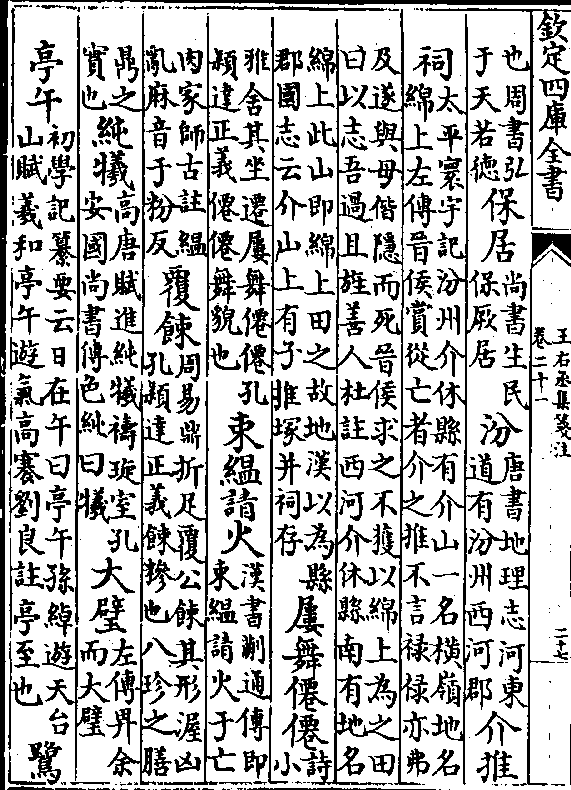 欽定四庫全書
王右丞集箋注
卷二十一
二十七
也周書弘
于天若德
保居
尚書生民
保厥居
汾
唐書地理志河東
道有汾州西河郡
介推
祠
太平寰宇記汾州介休縣有介山一名橫嶺地名
綿上左傳晉侯賞從亡者介之推不言祿祿亦弗
及遂與母偕隱而死晉侯求之不獲以綿上為之田
曰以志吾過且旌善人杜註西河介休縣南有地名
綿上此山即綿上田之故地漢以為縣
郡國志云介山上有子推塚并祠存
屢舞僊僊
詩
小
雅舍其坐遷屢舞僊僊孔
頴達正義僊僊舞貌也
束緼請火
漢書蒯通傳即
束緼請火于亡
肉家師古註緼
亂麻音于粉反
覆餗
周易鼎折足覆公餗其形渥凶
孔頴達正義餗糝也八珍之膳
鼎之
實也
純犧
高唐賦進純犧禱琁室孔
安國尚書傳色純曰犧
大璧
左傳畀余
而大璧
亭午
初學記纂要云日在午曰亭午孫綽遊天台
山賦羲和亭午遊氣高褰劉良註亭至也
鷺